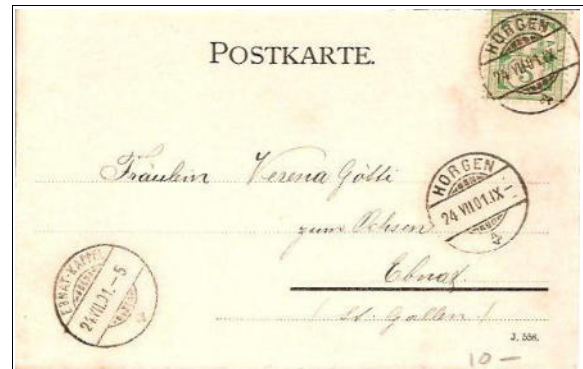 POSTKARTE.
HORGEN
24 VII 01. IX
5
Fräulein Verena Götti
HORGEN
24 VII.01. IX –
zum Ochsen
Ebnat.
EBNAT-KAPPEL
24.VII.01. – 5
(St. Gallen)
J. 558.
10 –